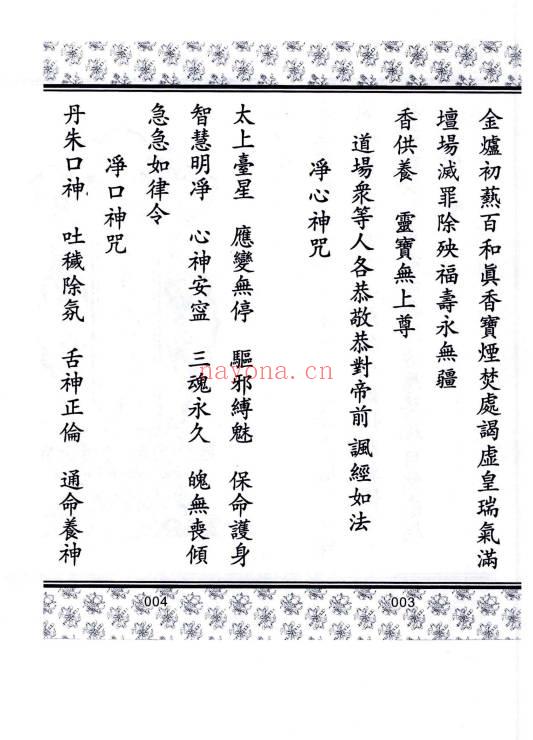 金爐初爇百和眞香寶煙焚處謁虛皇瑞氣滿
壇場滅罪除殃福壽永無疆
香供養　靈寶無上尊
道場衆等人各恭敬恭對帝前諷經如法
淨心神咒
太上臺星　應變無停　驅邪縛魅　保命護身
智慧明淨　心神安寍　三魂永久　魄無喪傾
急急如律令
淨口神咒
丹朱口神　吐穢除氛　舌神正倫　通命養神
003
004
nayona.cn